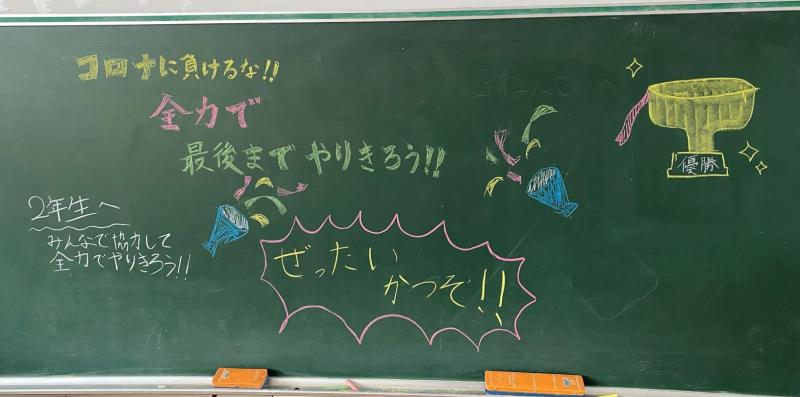 コロナに負けるな!!
全力で
最後までやりきろう!!
優勝
2年生へ
みんなで協力して
全力でやりきろう!!
ぜったい
かつぞ!!